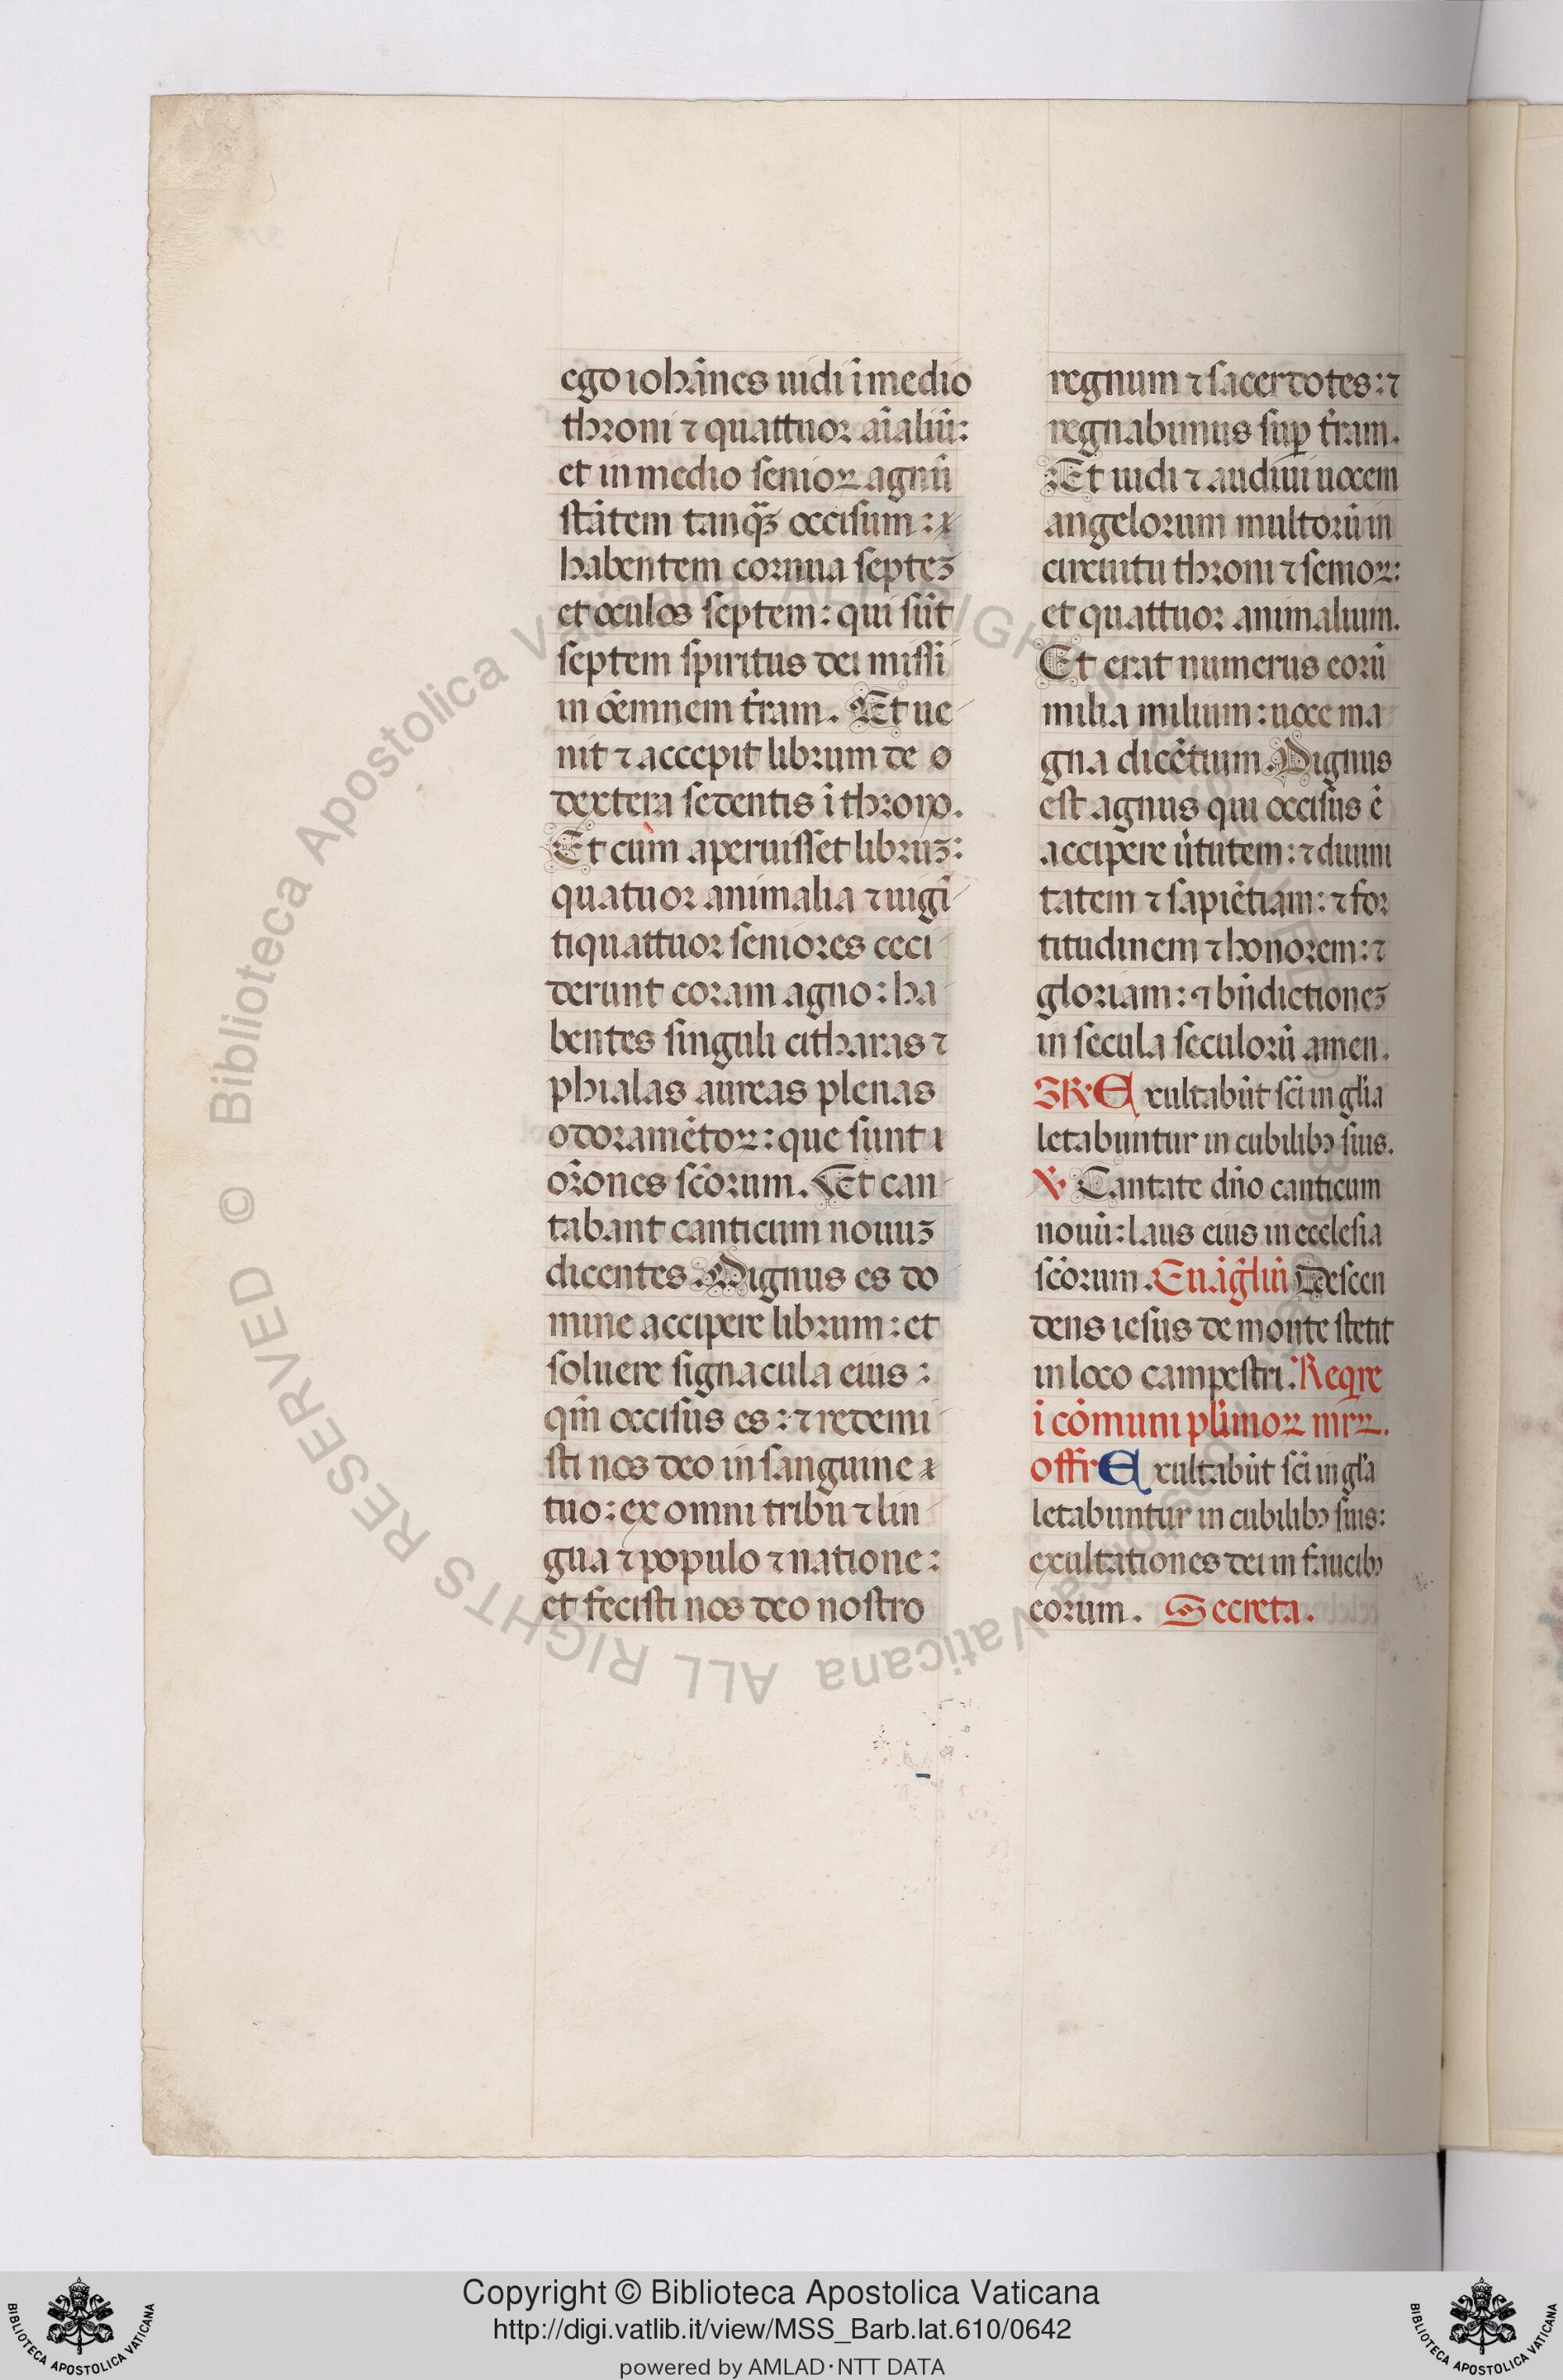 ego ioha̅nes uidi i̅ medio
throni ⁊ quattuor ai̅aliu̅:
et in medio senioꝝ agnu̅
sta̅tem tanqꝫ occisum: ⁊
habentem cornua septeꝫ
et oculos septem: qui su̅t
septem spiritus dei missi
in oe̅mnem t̅ram. Et ue
nit ⁊ accepit librum de o
dextera sedentis i̅ throno.
Et cum aperuisset libruꝫ:
quatuor animalia ⁊ uigi̅
tiquattuor seniores ceci
derunt coram agno: ha
bentes singuli citharas ⁊
phialas aureas plenas
odorame̅toꝝ: que sunt i
or̅ones sc̅orum. Et can
tabant canticum nouuꝫ
dicentes. Dignus es do
mine accipere librum: et
soluere signacula eius:
qm̅ occisus es: ⁊ redemi
sti nos deo in sanguine ⁊
tuo: ex omni tribu ⁊ lin
gua ⁊ populo ⁊ natione:
et fecisti nos deo nostro
regnum ⁊ sacerdotes: ⁊
regnabimus sup̱ t̅ram.
Et uidi ⁊ audiui uocem
angelorum multoru̅ in
circuitu throni ⁊ senioꝝ:
et quattuor animalium.
Et erat numerus eoru̅
milia milium: uoce ma
gna dice̅tium. Dignus
est agnus qui occisus e̅
accipere u̅tutem: ⁊ diuini
tatem ⁊ sapie̅tiam: ⁊ for
titudinem ⁊ honorem: ⁊
gloriam: ⁊ bn̅dictioneꝫ
in secula seculoru̅ amen.
Gr̅ Exultabu̅t sc̅i in gl̅ia
letabuntur in cubilibꝰ suis.
℣. Cantate dn̅o canticum
nouu̅: laus eius in ecclesia
sc̅orum. Eua̅g̅liu̅ Descen
dens iesus de monte stetit
in loco campestri. Reqr̅e
i̅ co̅muni pl̅imoꝝ mr̅ꝝ.
offr̅ Exultabu̅t sc̅i in gl̅a
letabuntur in cubilibꝰ suis:
exultationes dei in faucibꝰ
eorum. Secreta.
© Biblioteca Apostolica Vaticana ALL RIGHTS RESERVED
Copyright © Biblioteca Apostolica Vaticana
http://digi.vatlib.it/view/MSS_Barb.lat.610/0642
powered by AMLAD·NTT DATA
BIBLIOTECA APOSTOLICA VATICANA
BIBLIOTECA APOSTOLICA VATICANA